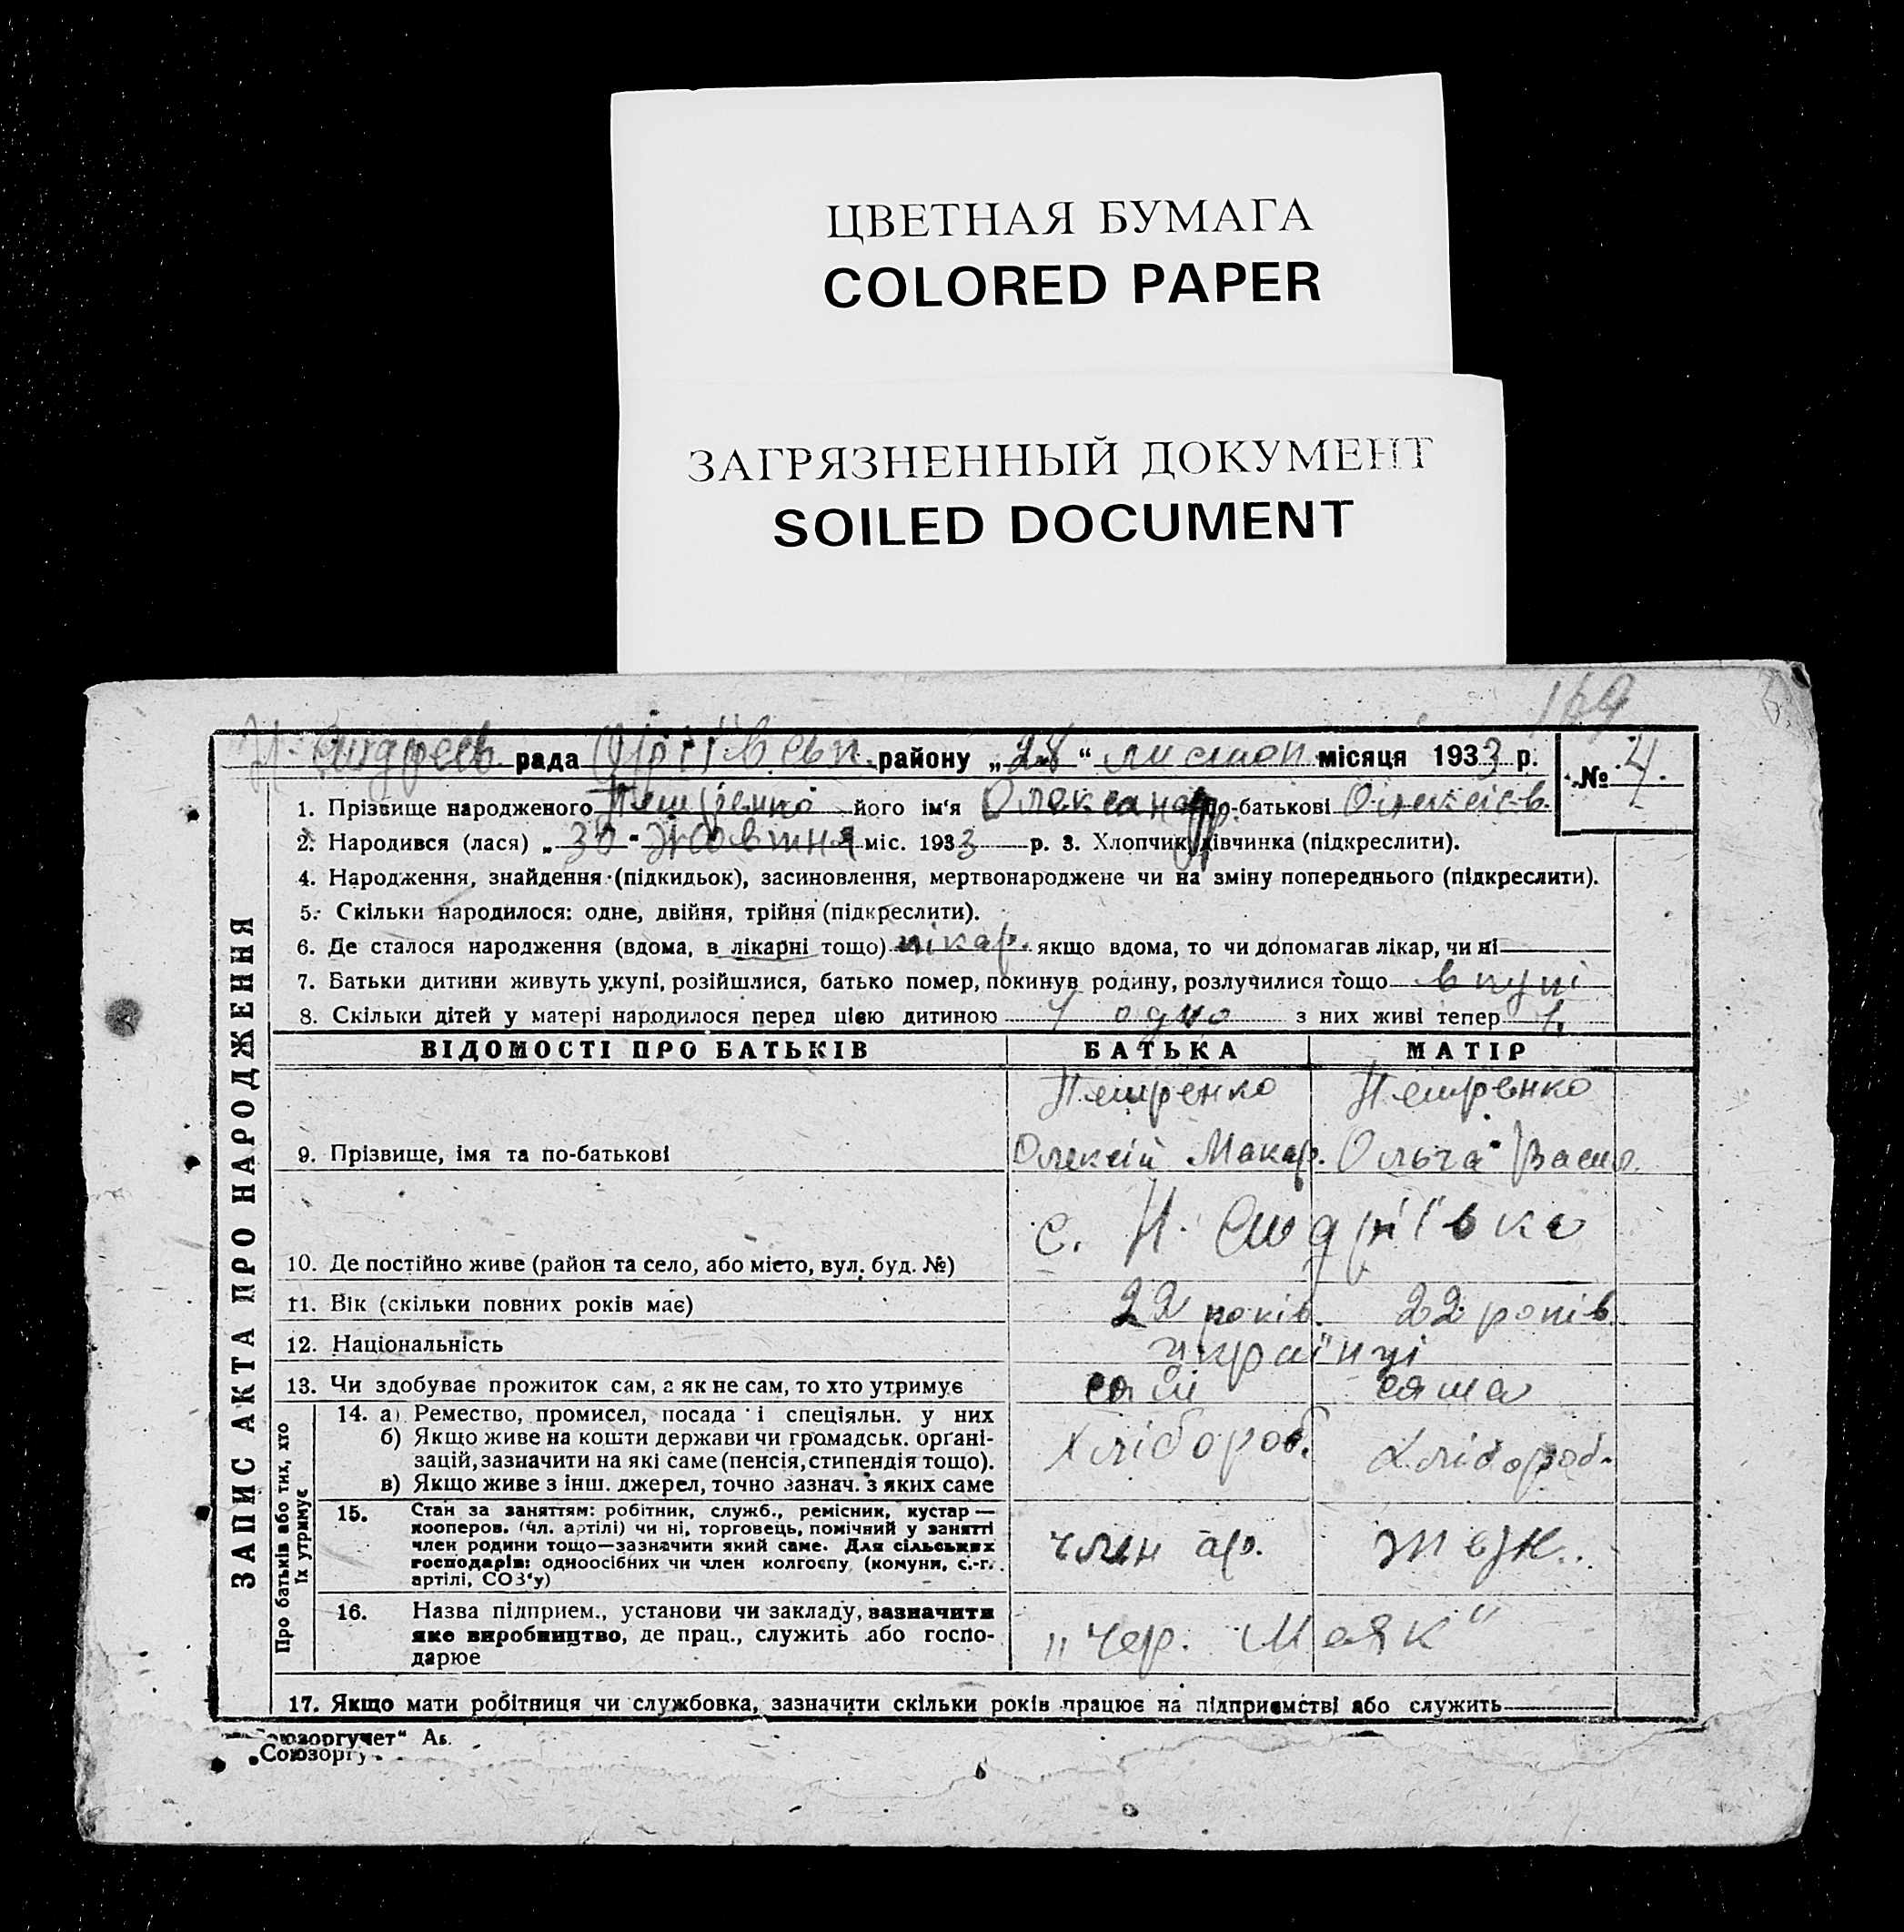 ЦВЕТНАЯ БУМАГА
COLORED PAPER
ЗАГРЯЗНЕННЫЙ ДОКУМЕНТ
SOILED DOCUMENT
169
Н. Андреев. рада Оріхівськ. району „28“ листоп місяця 1933 р.
№ 4.
ЗАПИС АКТА ПРО НАРОДЖЕННЯ
1. Прізвище народженого Петренко його ім'я Олександр. по-батькові Олексієв.
2. Народився (лася) „30" Жовтня міс. 1933 р. 3. Хлопчик, дівчинка (підкреслити).
4. Народження, знайдення (підкидьок), засиновлення, мертвонароджене чи на зміну попереднього (підкреслити).
5. Скільки народилося: одне, двійня, трійня (підкреслити).
6. Де сталося народження (вдома, в лікарні тощо) лікар. якщо вдома, то чи допомагав лікар, чи ні
7. Батьки дитини живуть укупі, розійшлися, батько помер, покинув родину, розлучилися тощо вкупі
8. Скільки дітей у матері народилося перед цією дитиною 1 одно з них живі тепер 1.
ВІДОМОСТІ ПРО БАТЬКІВ БАТЬКА МАТІР
Петренко Петренко
9. Прізвище, імя та по-батькові Олексій Макар. Ольга Васил.
с. Н. Андріївка
10. Де постійно живе (район та село, або місто, вул. буд. №)
11. Вік (скільки повних років має) 22 років. 22 років
12. Національність українці
13. Чи здобуває прожиток сам, а як не сам, то хто утримує сам сама
Про батьків або тих, хто
їх утримує
14. а) Ремество, промисел, посада і спеціяльн. у них
б) Якщо живе на кошти держави чи громадськ. органі-
зацій, зазначити на які саме (пенсія, стипендія тощо).
в) Якщо живе з інш. джерел, точно зазнач. з яких саме
Хлібороб. Хлібороб.
15. Стан за заняттям: робітник, служб., ремісник, кустар —
кооперов. (чл. артілі) чи ні, торговець, помічний у занятті
член родини тощо—зазначити який саме. Для сільських
господарів: одноосібних чи член колгоспу (комуни, с.-г.
артілі, СОЗ'у)
член ар.
16. Назва підприєм., установи чи закладу, зазначити
яке виробництво, де прац., служить або госпо-
дарює
„Чер. Маяк"
17. Якщо мати робітниця чи службовка, зазначити скільки років працює на підприємстві або служить